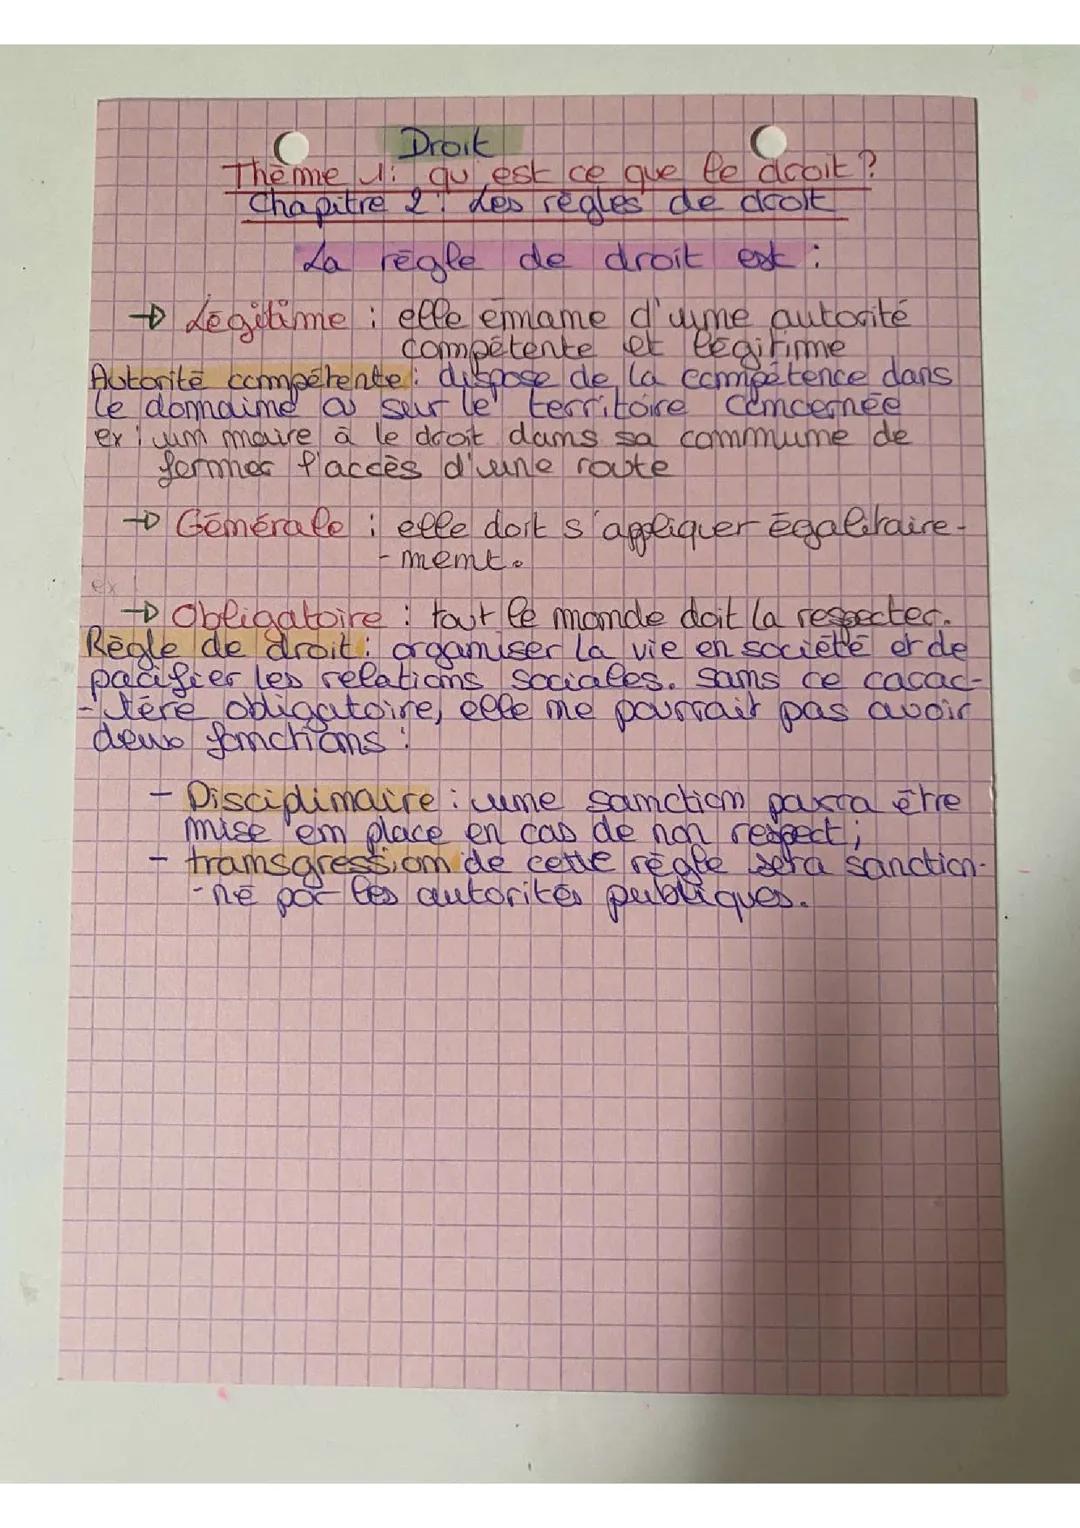 Droit
Thème 1: qu'est ce que le droit ?
Chapitre 2: Les règles de droit
La règle de droit est :
→ Légitime : elle émmame d'une autorité
compétente et légitime
Autorité compétente : dispose de la compétence dans
le domaine ou sur le territoire concernée
ex : um maire à le droit dams sa commume de
fermer l'accès d'une route
→ Générale : elle doit s'appliquer égalitaire-
-ment.
ex
→ Obligatoire : tout le monde doit la respecter.
Règle de droit : organiser la vie en société et de
pacifier les relations sociales. Sans ce carac-
-tère obligatoire, elle ne pourrait pas avoir
deux fonctions :
- Disciplinaire : une sanction pourra être
mise en place en cas de non respect ;
- transgression de cette règle sera sanction-
-né par les autorités publiques.